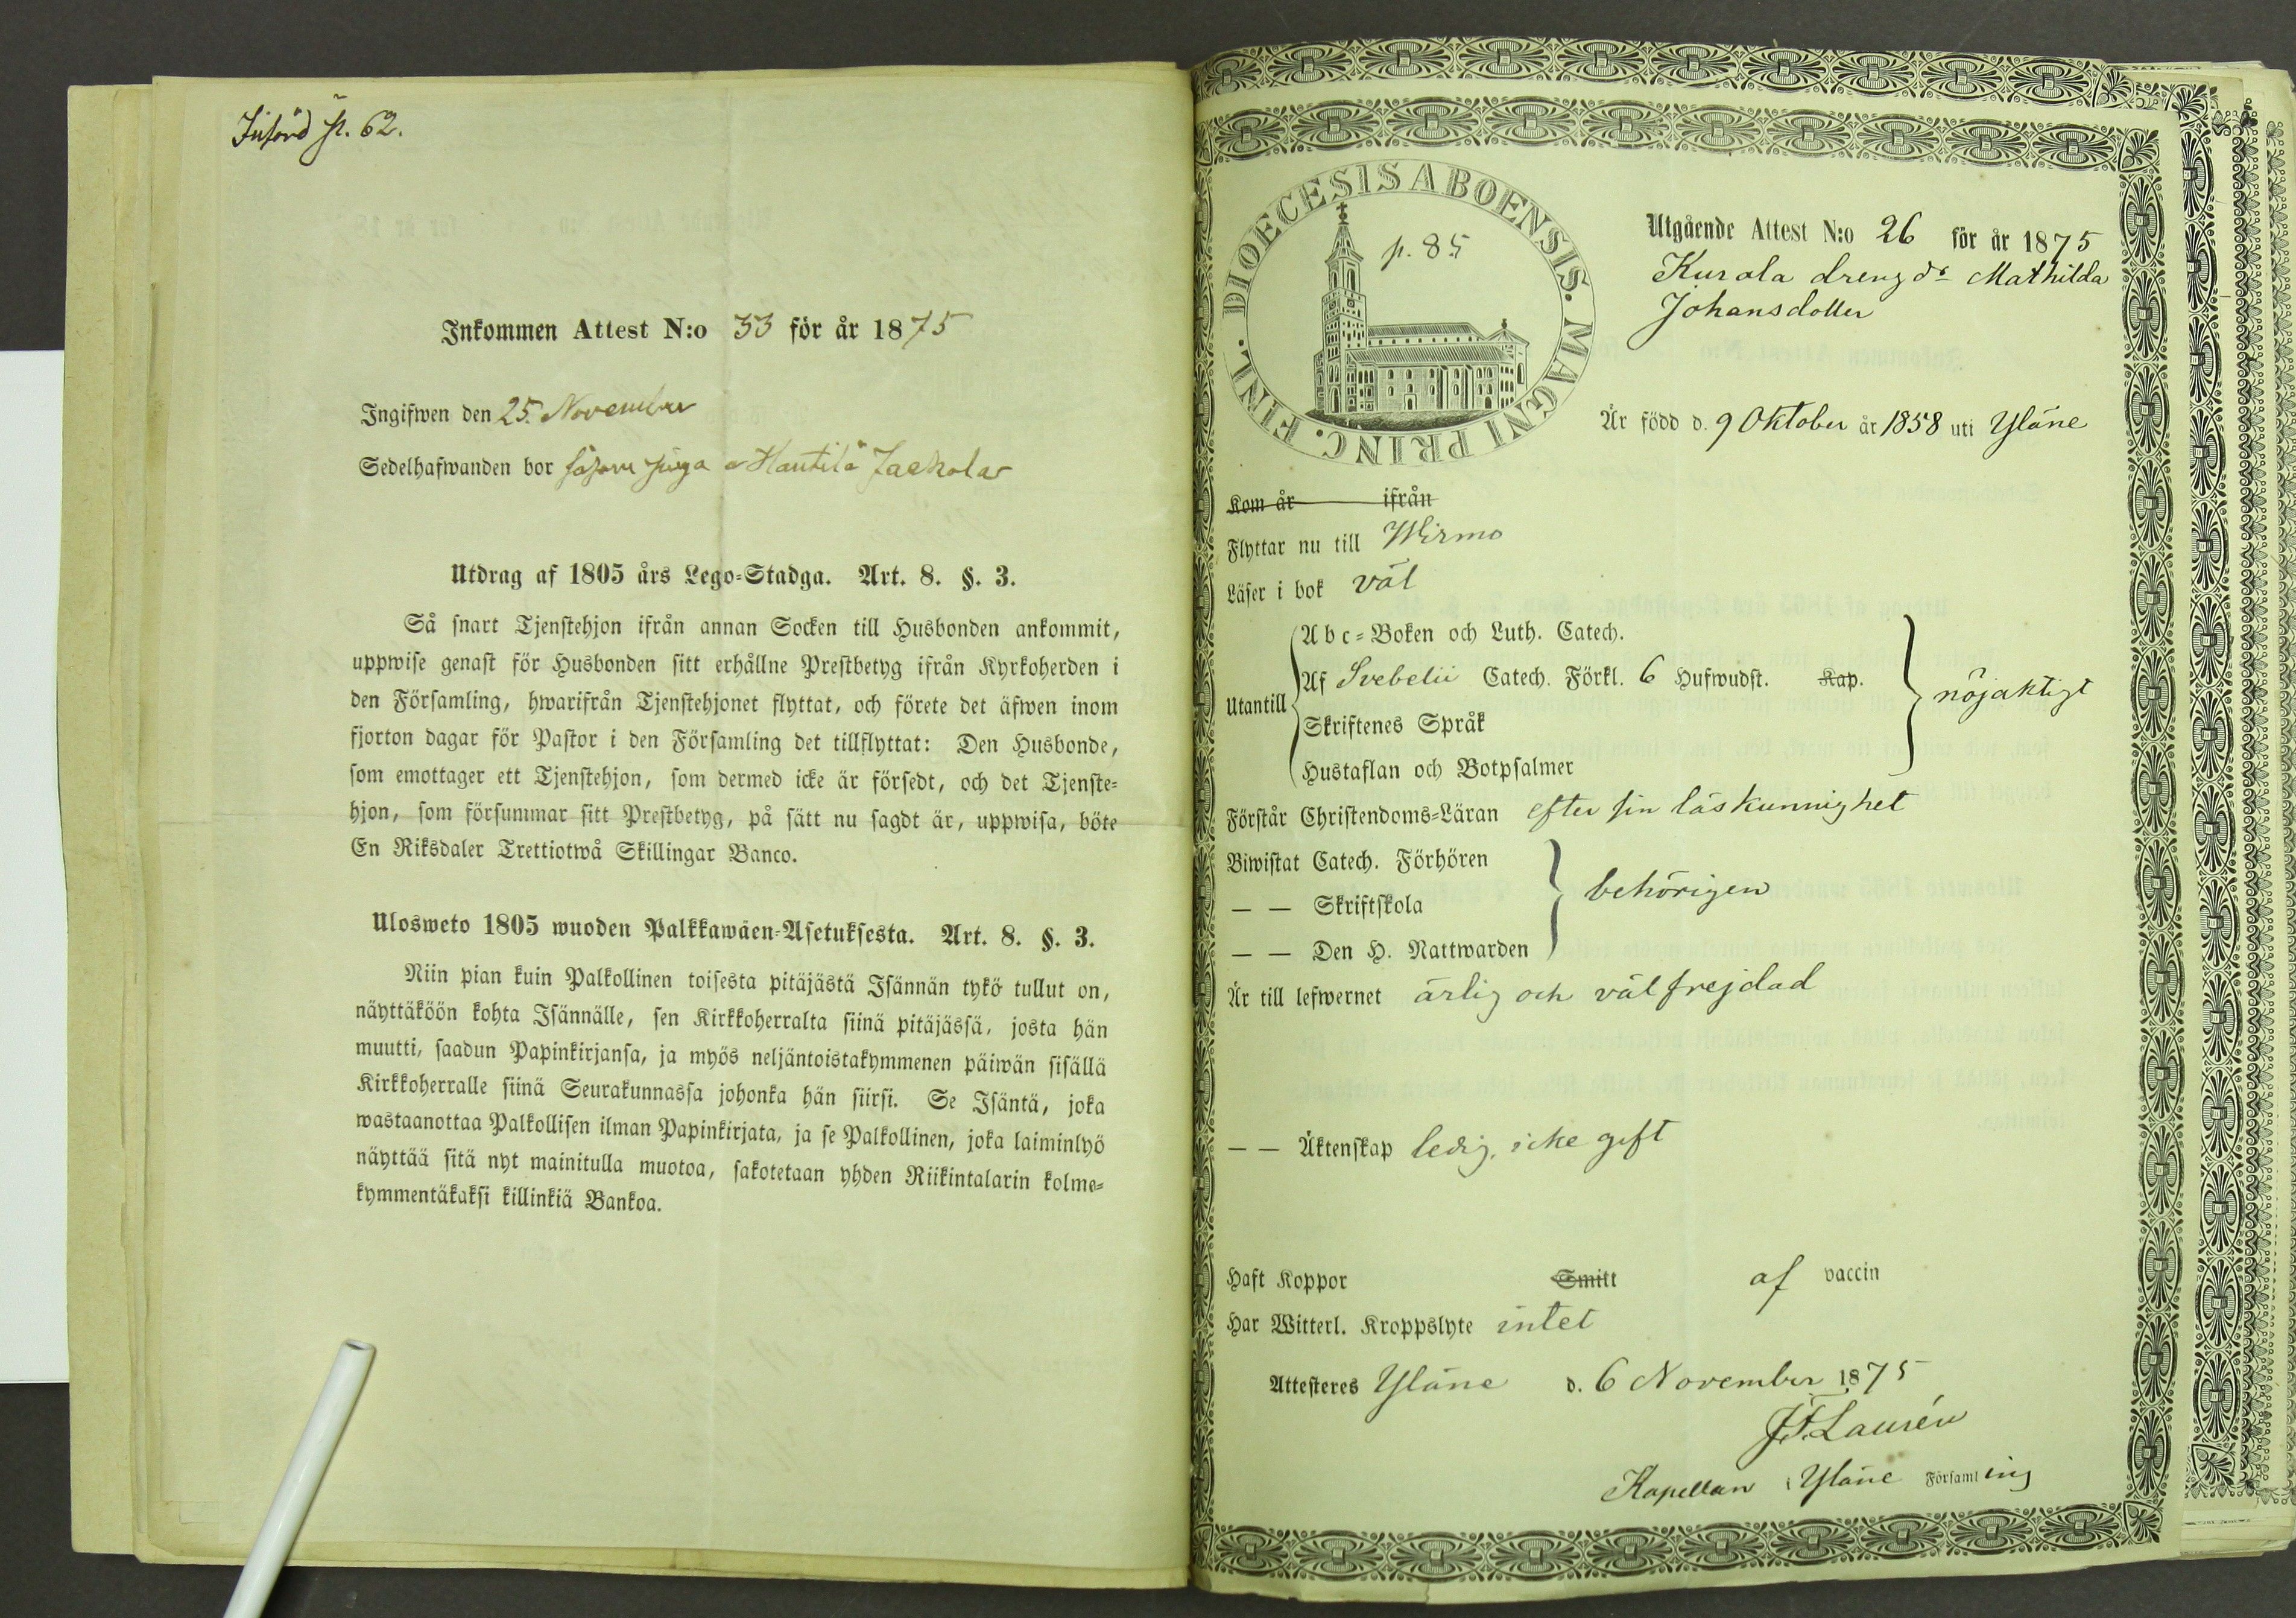 Införd p. 62.
Inkommen Attest N:o 33 för år 1875
Ingifwen den 25 November
Sedelhafwanden bor såsom piga Hautila Jaakola
Utdrag af 1805 års Lego-Stadga. Art. 8. §. 3.
Så snart Tjenstehjon ifrån annan Socken till Husbonden ankommit,
uppwise genast för Husbonden sitt erhållne Prestbetyg ifrån Kyrkoherden i
den Församling, hwarifrån Tjenstehjonet flyttat, och förete det äfwen inom
fjorton dagar för Pastor i den Församling det tillflyttat: Den Husbonde,
som emottager ett Tjenstehjon, som dermed icke är försedt, och det Tjenste-
hjon, som försummar sitt Prestbetyg, på sätt nu sagdt är, uppwisa, böte
En Riksdaler Trettiotwå Skillingar Banco.
Ulosweto 1805 wuoden Palkkawäen-Asetuksesta. Art. 8. §. 3.
Niin pian kuin Palkollinen toisesta pitäjästä Isännän tykö tullut on,
näyttäköön kohta Isännälle, sen Kirkkoherralta siinä pitäjässä, josta hän
muutti, saadun Papinkirjansa, ja myös neljäntoistakymmenen päiwän sisällä
Kirkkoherralle siinä Seurakunnassa johonka hän siirsi. Se Isäntä, joka
wastaanottaa Palkollisen ilman Papinkirjata, ja se Palkollinen, joka laiminlyö
näyttää sitä nyt mainitulla muotoa, sakotetaan yhden Riikintalarin kolme-
kymmentäkaksi killinkiä Bankoa.
DIOECESIS ABOENSIS. MAGNI PRINC. FINL.
p. 85
Utgående Attest N:o 26 för år 1875
Kurala drengdr Mathilda
Johansdotter
Är född d. 9 Oktober år 1858 uti Yläne
Kom år ifrån
Flyttar nu till Wirmo
Läser i bok väl
Utantill
Abc-Boken och Luth. Catech.
Af Svebelii Catech. Förkl. 6 Hufwudst. Kap.
Skriftenes Språk
Hustaflan och Botpsalmer
nöjaktigt
Förstår Christendoms-Läran efter sin läskunnighet
Biwistat Catech. Förhören
— — Skriftskola
— — Den H. Nattwarden
behörigen
Är till lefwernet ärlig och välfrejdad
— — Äktenskap ledig, icke gift
Haft Koppor Smitt af vaccin
Har Witterl. Kroppslyte intet
Attesteres Yläne d. 6 November 1875
J.F. Laurén
Kapellan i Yläne Församling